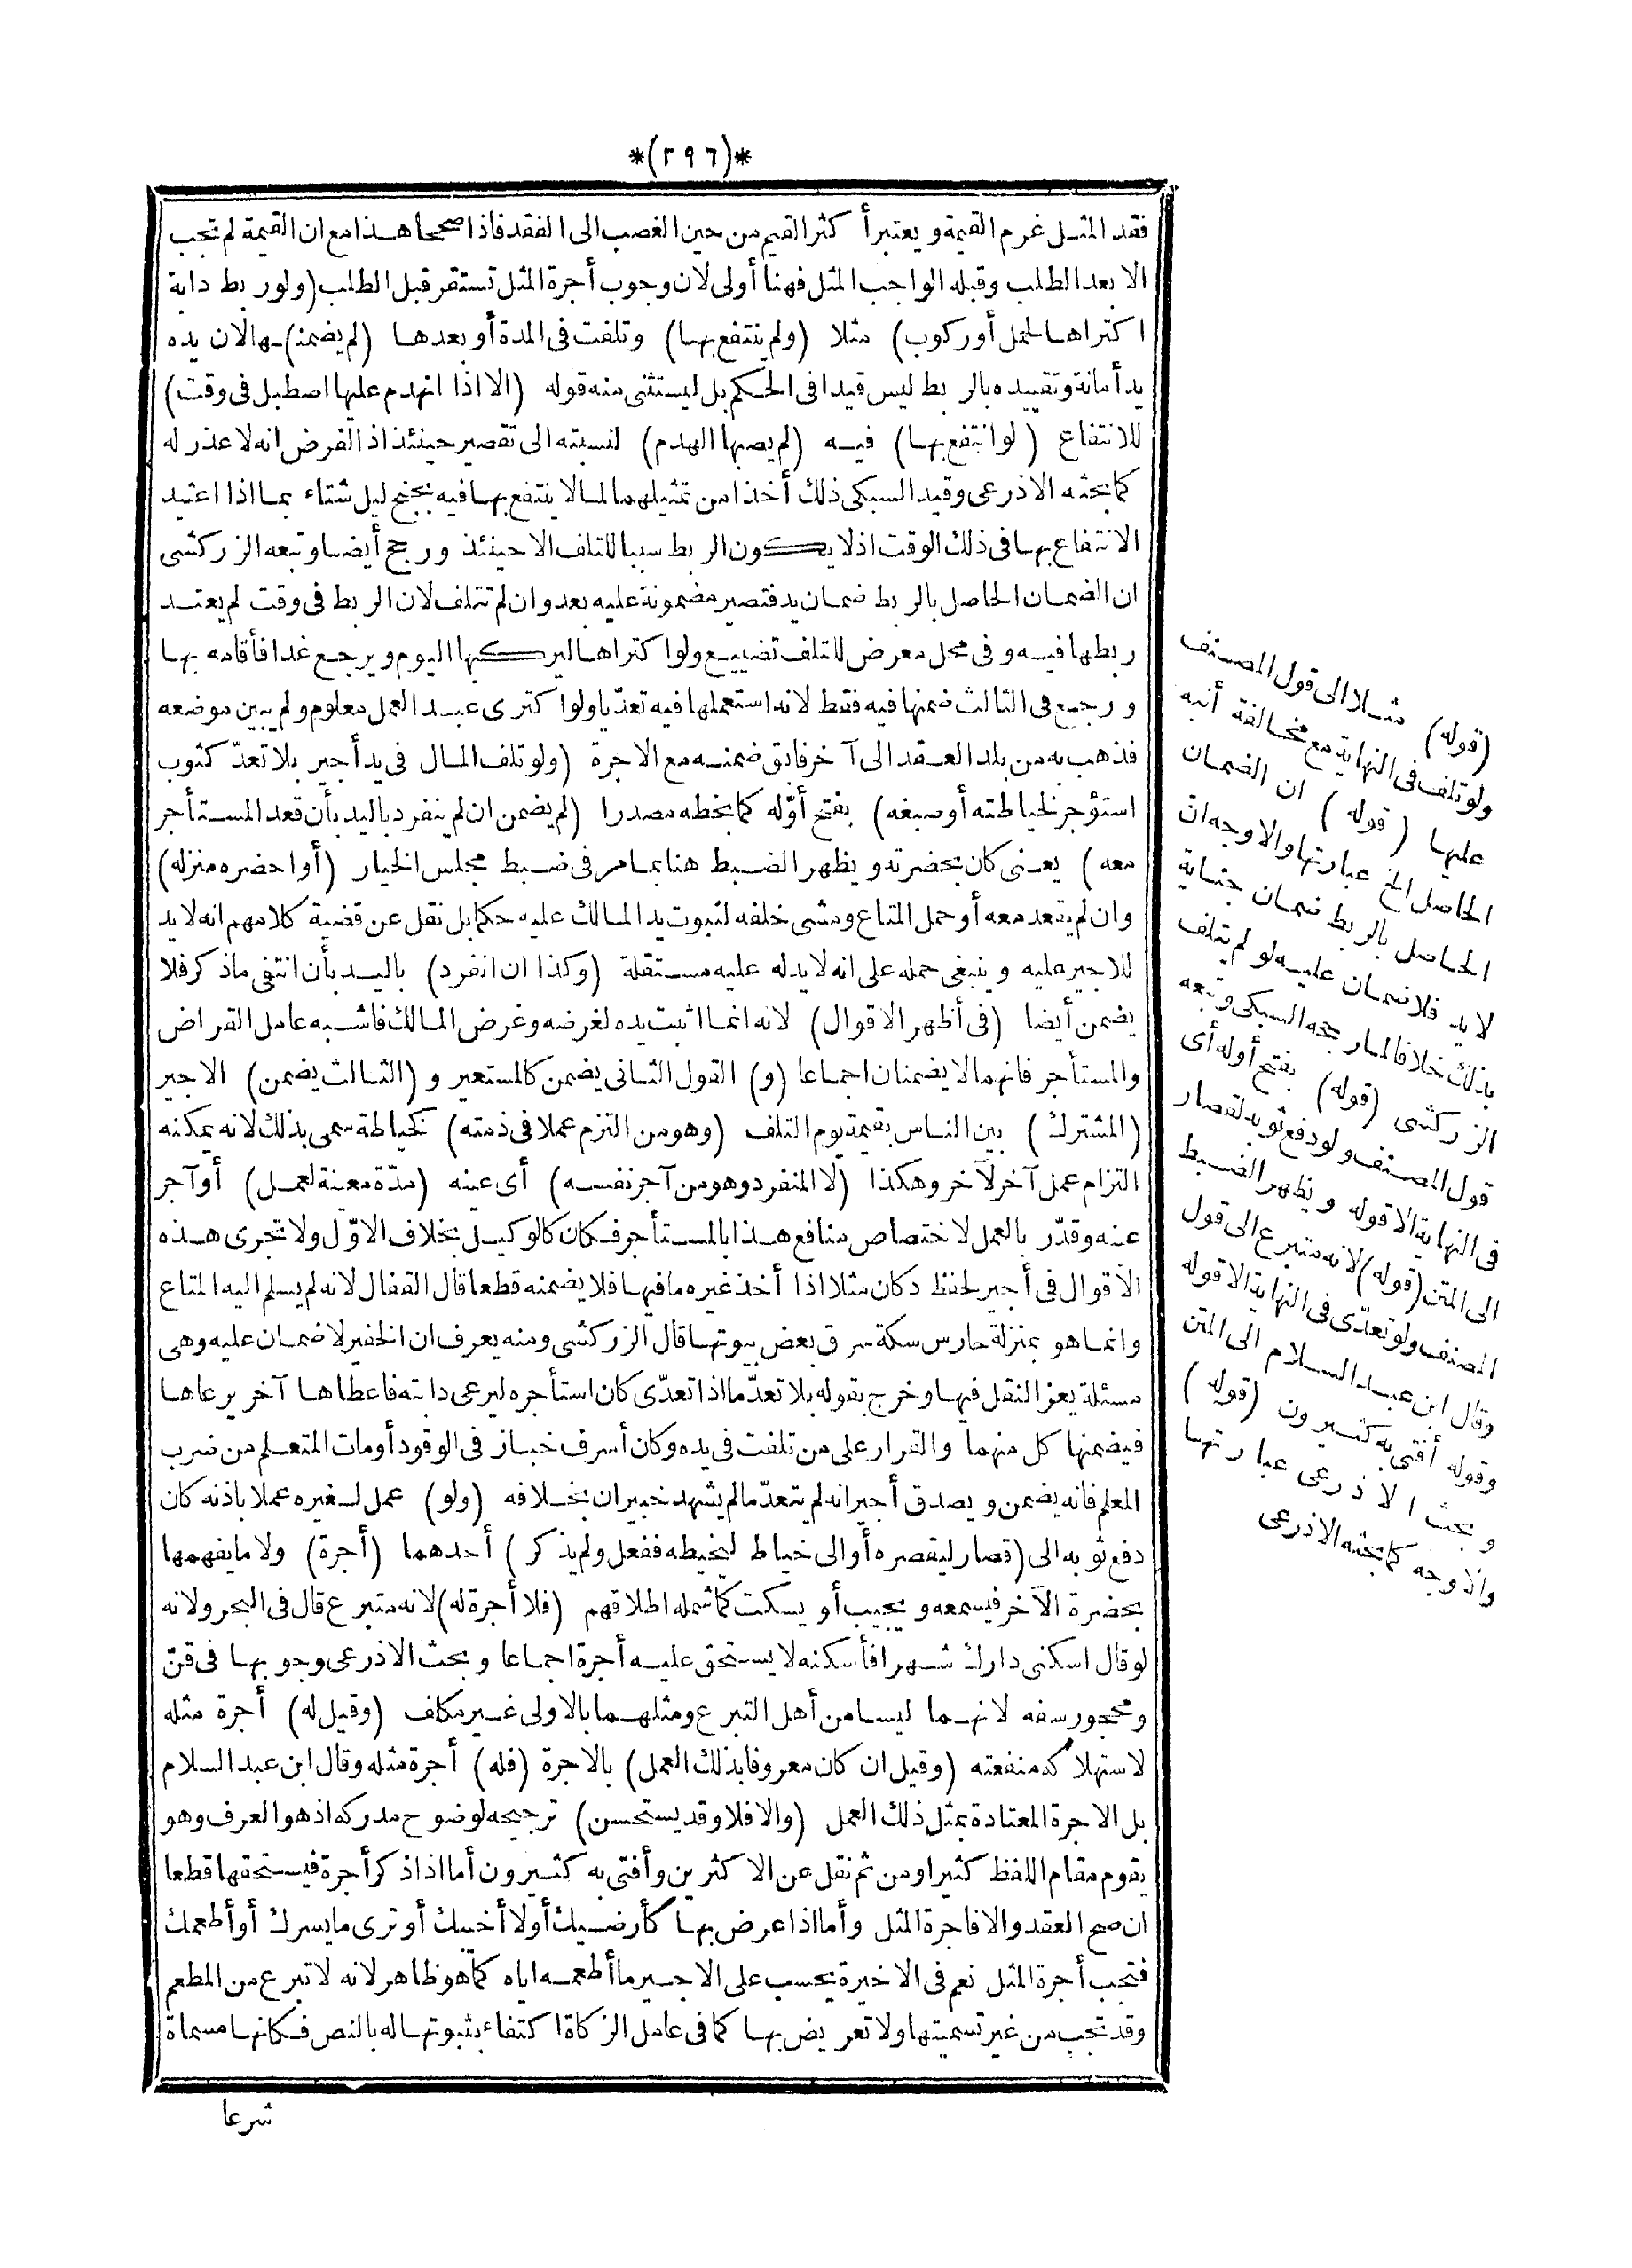 *(٢٩٦)*
فقد المثل غرم القيمة ويعتبر أكثر القيم من حين الغصب الى الفقد فاذا صححا هذا مع ان القيمة لم تجب
الا بعد الطلب وقبله الواجب المثل فهنا أولى لان وجوب أجرة المثل تستقر قبل الطلب (ولو ربط دابة
اكتراها لحمل أو ركوب) مثلا (ولم ينتفع بها) وتلفت فى المدة أو بعدها (لم يضمنها) لان يده
يد أمانة وتقييده بالربط ليس قيدا فى الحكم بل ليستثنى منه قوله (الا اذا انهدم عليها اصطبل فى وقت)
للانتفاع (لو انتفع بها) فيه (لم يصبها الهدم) لنسبته الى تقصير حينئذ اذ الفرض انه لا عذر له
كما بحثه الاذرعى وقيد السبكى ذلك أخذا من تمثيلهما لما لا ينتفع بها فيه بجنح ليل شتاء بما اذا اعتيد
الانتفاع بها فى ذلك الوقت اذ لا يكون الربط سببا للتلف الا حينئذ ورجح أيضا وتبعه الزركشى
ان الضمان الحاصل بالربط ضمان يد فتصير مضمونة عليه بعد وان لم تتلف لان الربط فى وقت لم يعتد
ربطها فيه وفى محل معرض للتلف تضييع ولو اكتراها ليركبها اليوم ويرجع غدا فأقامه بها
ورجع فى الثالث ضمنها فيه فقط لانه استعملها فيه تعدّيا ولو اكترى عبدا لعمل معلوم ولم يبين موضعه
فذهب به من بلد العقد الى آخر فابق ضمنه مع الاجرة (ولو تلف المال فى يد أجير بلا تعدّ كثوب
استؤجر لخياطته أو صبغه) بفتح أوّله كما بخطه مصدرا (لم يضمن ان لم ينفرد باليد بأن قعد المستأجر
معه) يعنى كان بحضرته ويظهر الضبط هنا بما مر فى ضبط مجلس الخيار (أو أحضره منزله)
وان لم يقعد معه أو حمل المتاع ومشى خلفه لثبوت يد المالك عليه حكما بل نقل عن قضية كلامهم انه لا يد
للاجير عليه وينبغى حمله على انه لا يد له عليه مستقلة (وكذا ان انفرد) باليد بأن انتفى ما ذكر فلا
يضمن أيضا (فى أظهر الاقوال) لانه انما اثبت يده لغرضه وغرض المالك فاشبه عامل القراض
والمستأجر فانهما لا يضمنان اجماعا (و) القول الثانى يضمن كالمستعير و (الثالث يضمن) الاجير
(المشترك) بين الناس بقيمة يوم التلف (وهو من التزم عملا فى ذمته) كخياطة سمى بذلك لانه يمكنه
التزام عمل آخر لآخر وهكذا (لا المنفرد وهو من آجر نفسه) أى عينه (مدّة معينة لعمل) أو آجر
عينه وقدّر بالعمل لاختصاص منافع هذا بالمستأجر فكان كالوكيل بخلاف الاوّل ولا تجرى هذه
الاقوال فى أجير لحفظ دكان مثلا اذا أخذ غيره ما فيها فلا يضمنه قطعا قال القفال لانه لم يسلم اليه المتاع
وانما هو بمنزلة حارس سكة سرق بعض بيوتها قال الزركشى ومنه يعرف ان الخفير لا ضمان عليه وهى
مسئلة يعز النقل فيها وخرج بقوله بلا تعدّ ما اذا تعدّى كان استأجره ليرعى دابته فاعطاها آخر يرعاها
فيضمنها كل منهما والقرار على من تلفت فى يده وكان أسرف خباز فى الوقود أو مات المتعلم من ضرب
المعلم فانه يضمن ويصدق أجير انه لم يتعدّ ما لم يشهد خبيران بخلافه (ولو) عمل لغيره عملا باذنه كان
دفع ثوبه الى (قصار ليقصره أو الى خياط ليخيطه ففعل ولم يذكر) أحدهما (أجرة) ولا ما يفهمها
بحضرة الآخر فيسمعه ويجيب أو يسكت كما شمله اطلاقهم (فلا أجرة له) لانه متبرع قال فى البحر ولانه
لو قال اسكنى دارك شهرا فأسكنه لا يستحق عليه أجرة اجماعا وبحث الاذرعى وجوبها فى قنّ
ومحجور سفه لانهما ليسا من أهل التبرع ومثلهما بالاولى غير مكلف (وقيل له) أجرة مثله
لاستهلاكه منفعته (وقيل ان كان معروفا بذلك العمل) بالاجرة (فله) أجرة مثله وقال ابن عبد السلام
بل الاجرة المعتادة بمثل ذلك العمل (والا فلا وقد يستحسن) ترجيحه لوضوح مدركه اذ هو العرف وهو
يقوم مقام اللفظ كثيرا ومن ثم نقل عن الاكثرين وأفتى به كثيرون أما اذا ذكر أجرة فيستحقها قطعا
ان صح العقد والا فاجرة المثل وأما اذا عرض بها كأرضيك أو لا أخيبك أو ترى ما يسرك أو أطعمك
فتجب أجرة المثل نعم فى الاخيرة يحسب على الاجير ما أطعمه اياه كما هو ظاهر لانه لا تبرع من المطعم
وقد تجب من غير تسميتها ولا تعريض بها كما فى عامل الزكاة اكتفاء بثبوتها له بالنص فكانها مسماة
شرعا
(قوله) مثلا الى قول المصنف
ولو تلف فى النهاية مع مخالفة أنبه
عليها (قوله) ان الضمان
الحاصل الخ عبارتها والاوجه ان
الحاصل بالربط ضمان جناية
لا يد فلا ضمان عليه لو لم يتلف
بذلك خلافا لما رجحه السبكى وتبعه
الزركشى (قوله) بفتح أوله أى
قول المصنف ولو دفع ثوبه لقصار
فى النهاية الا قوله ويظهر الضبط
الى المتن (قوله) لانه متبرع الى قول
المصنف ولو تعدّى فى النهاية الا قوله
وقال ابن عبد السلام الى المتن
وقوله أفتى به كثيرون (قوله)
وبحث الاذرعى عبارتها
والاوجه كما بحثه الاذرعى